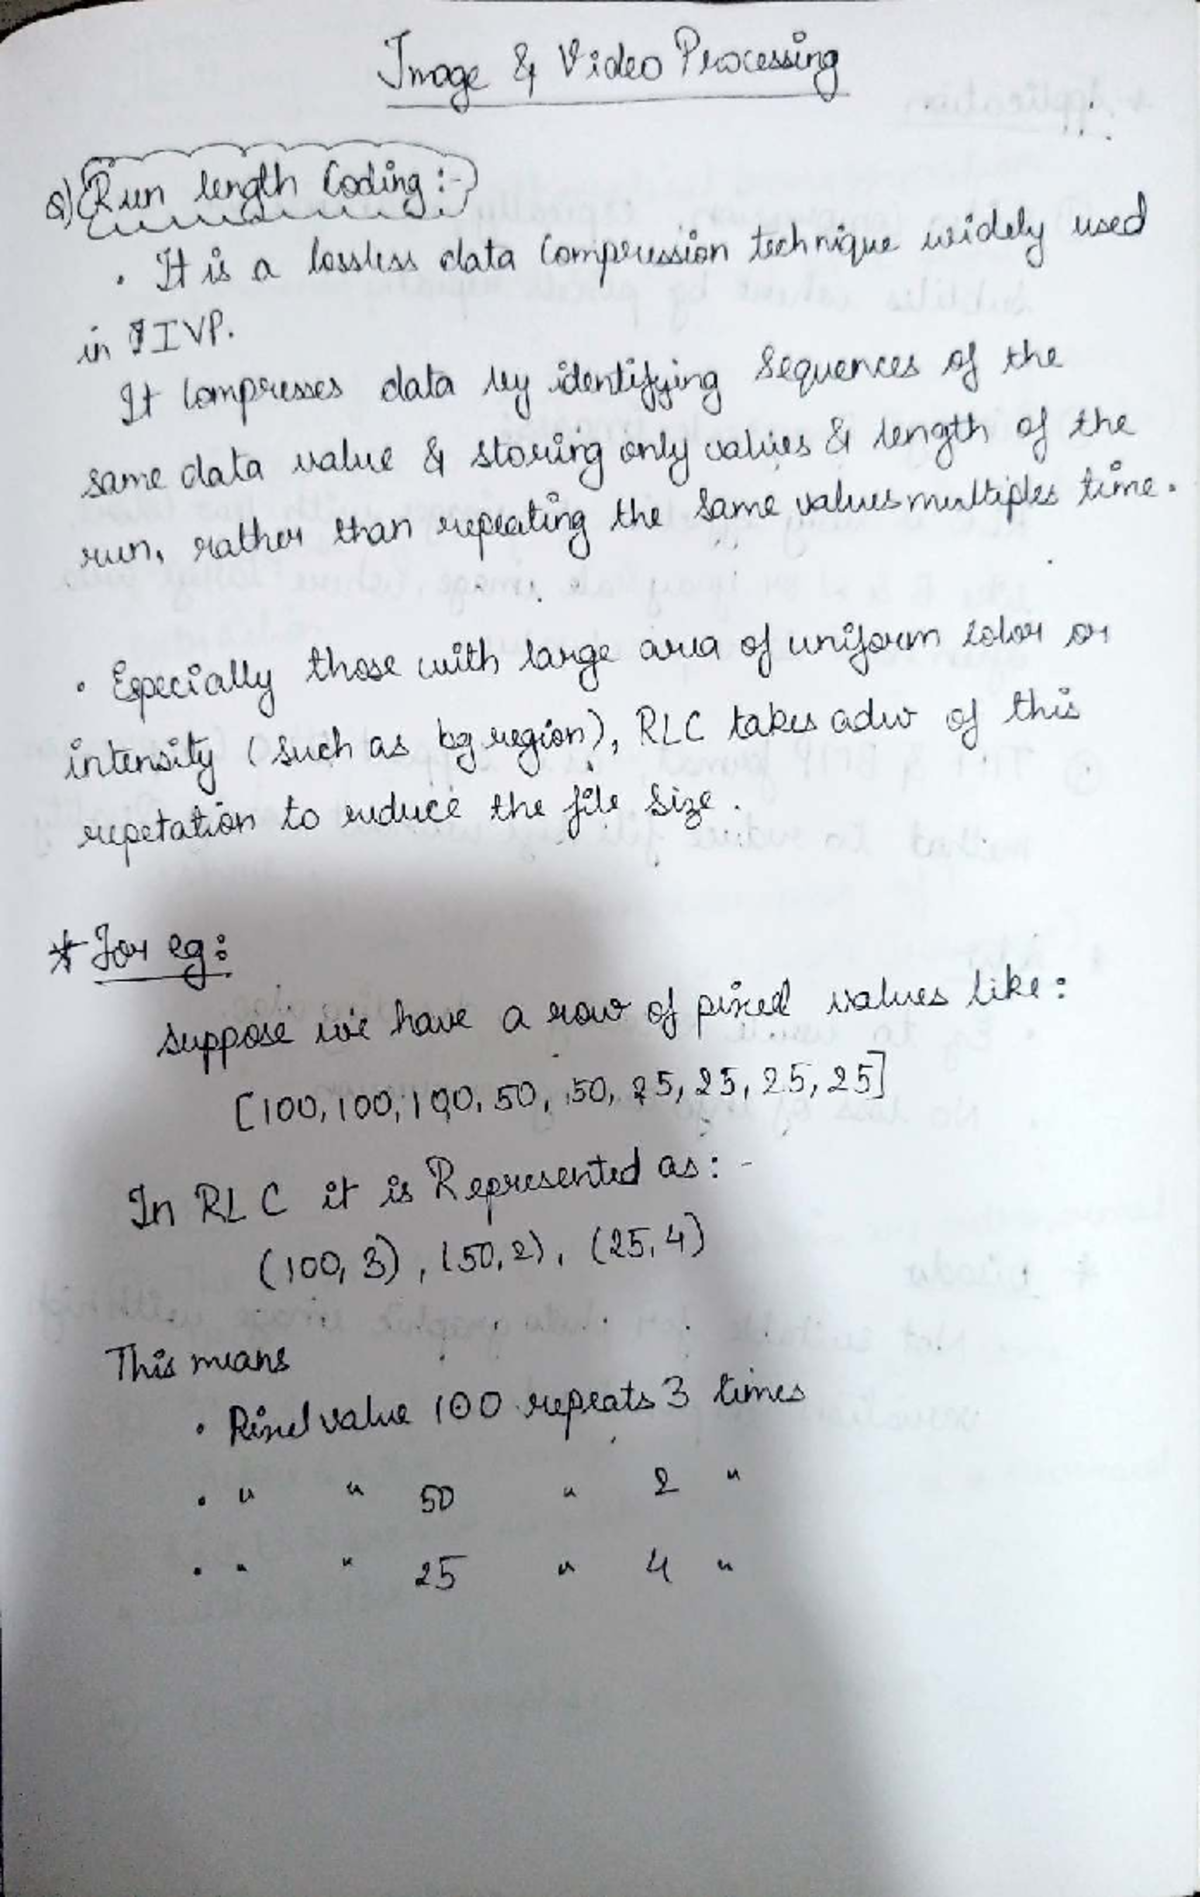 Image & Video Processing
Q) Run length Coding :-
• It is a lossless data compression technique widely used
in IVP.
It compresses data by identifying sequences of the
same data value & storing only values & length of the
run, rather than repeating the same values multiples time.
• Especially those with large area of uniform color or
intensity (such as bg region), RLC takes adv of this
repetation to reduce the file size.
* For eg:
suppose we have a row of pixel values like:
[100, 100, 100, 50, 50, 25, 25, 25, 25]
In RLC it is Represented as: -
(100, 3), (50, 2), (25, 4)
This means
• Pixel value 100 repeats 3 times
• " " 50 " 2 "
• " " 25 " 4 "